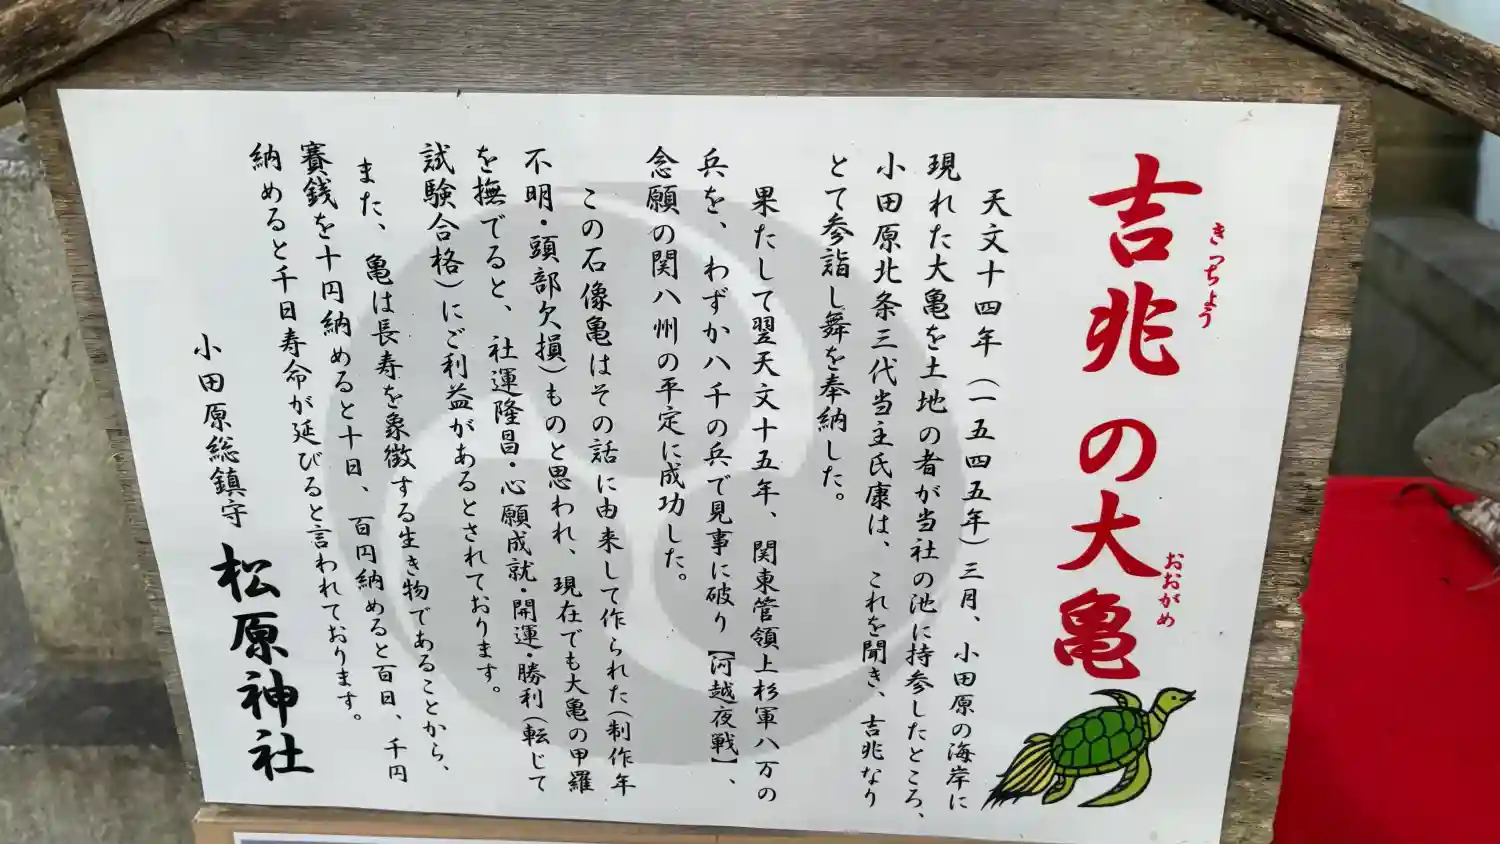 吉兆の大亀
きっちょう
おおがめ
天文十四年(一五四五年)三月、小田原の海岸に
現れた大亀を土地の者が当社の池に持参したところ、
小田原北条三代当主氏康は、これを聞き、吉兆なり
とて参詣し舞を奉納した。
果たして翌天文十五年、関東管領上杉軍八万の
兵を、わずか八千の兵で見事に破り【河越夜戦】、
念願の関八州の平定に成功した。
この石像亀はその話に由来して作られた(制作年
不明・頭部欠損)ものと思われ、現在でも大亀の甲羅
を撫でると、社運隆昌・心願成就・開運・勝利(転じて
試験合格)にご利益があるとされております。
また、亀は長寿を象徴する生き物であることから、
賽銭を十円納めると十日、百円納めると百日、千円
納めると千日寿命が延びると言われております。
小田原総鎮守 松原神社